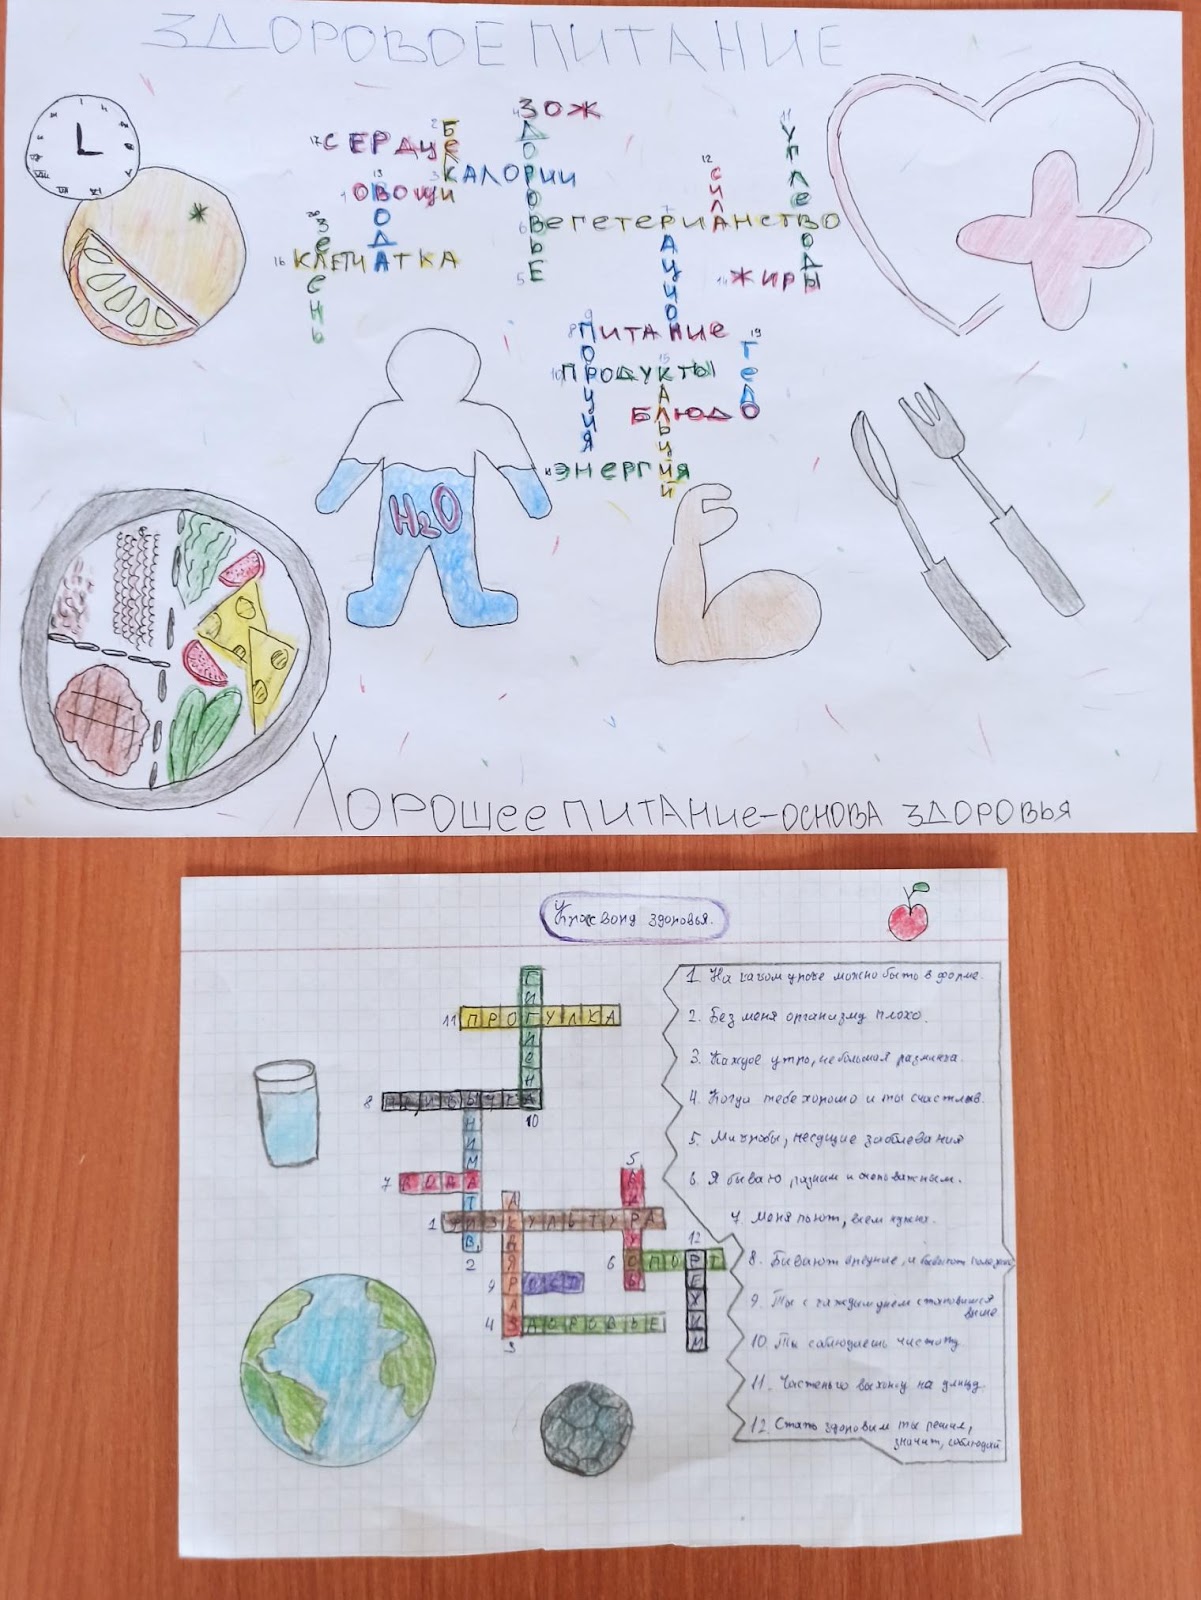 ЗДОРОВОЕ ПИТАНИЕ
ЗОЖ
СЕРДЦЕ
БЕЛКИ
ЗДОРОВЬЕ
УГЛЕВОДЫ
КАЛОРИИ
СИЛА
ОВОЩИ
ВОДА
ВЕГЕТЕРИАНСТВО
РАЦИОН
КЛЕТЧАТКА
ЗЕЛЕНЬ
ЖИРЫ
ПИТАНИЕ
ПОРЦИЯ
ТЕЛО
ПРОДУКТЫ
КАЛЬЦИЙ
БЛЮДО
ЭНЕРГИЯ
H2O
ХОРОШЕЕ ПИТАНИЕ-ОСНОВА ЗДОРОВЬЯ
Кроссворд здоровья.
ГИГИЕНА
11 ПРОГУЛКА
8
10
7 ВОДА
5
1 ФИЗКУЛЬТУРА
12
2
6 СПОРТ
РЕЖИМ
9 РОСТ
4 ЗДОРОВЬЕ
3
1. На каком уроке можно быть в форме.
2. Без меня организму плохо.
3. Каждое утро, небольшая разминка.
4. Когда тебе хорошо и ты счастлив.
5. Микробы, несущие заболевания
6. Я бываю разным и очень важным.
7. Меня пьют, всем нужна.
8. Бывают вредные, и бывают полезные
9. Ты с каждым днем становишься
выше
10. Ты соблюдаешь чистоту.
11. Частенько выхожу на улицу.
12. Стать здоровым ты решил,
значит, соблюдай